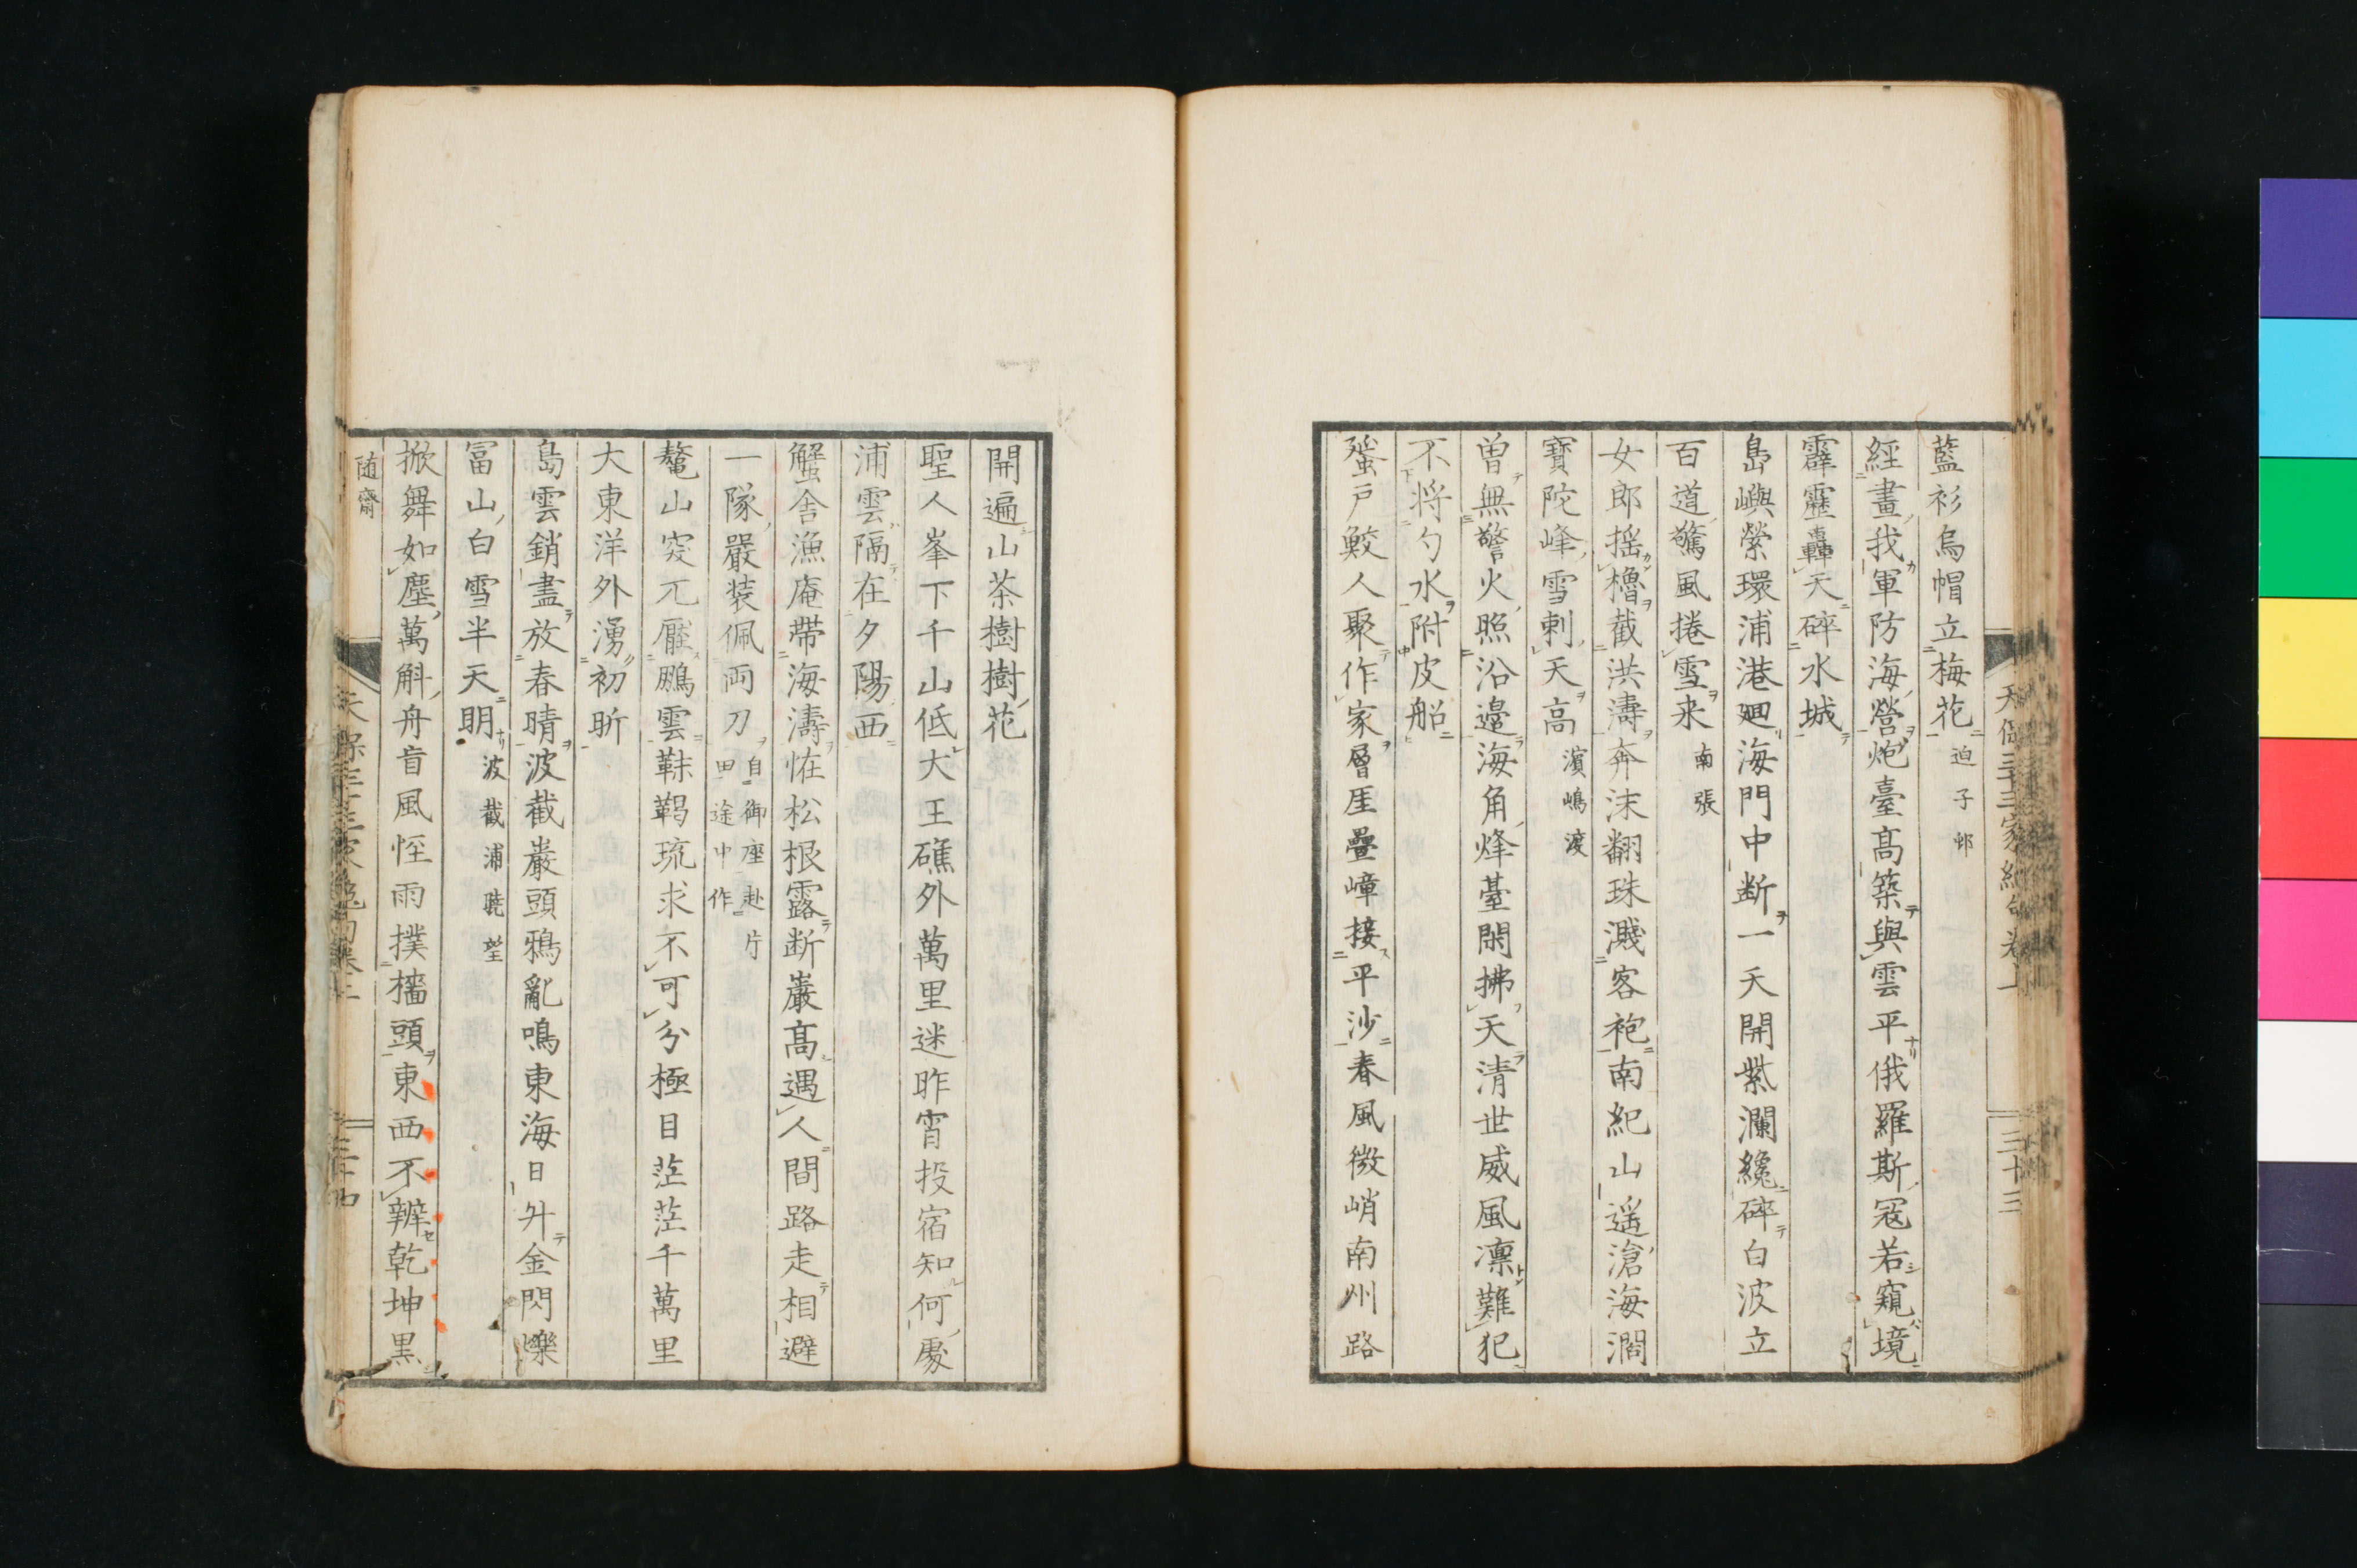 藍衫烏帽立梅花 迫子邨
經畫我軍防海營炮臺高築與雲平俄羅斯寇若窺境
霹靂轟天碎水城
島嶼縈環浦港廻海門中断一天開紫瀾纔碎白波立
百道驚風捲雪来 南張
女郎揺櫓截洪濤奔沫翻珠濺客袍南紀山遥滄海濶
寶陀峰雪刺天高 濱嶋渡
曽無警火照沿邉海角烽䑓閑拂天清世威風凛難犯
不将勺水附皮船
蜑戸鮫人聚作家層厓疊嶂接平沙春風微峭南州路
天保三十三家絶句卷上
三十三
開遍山茶樹樹花
聖人峯下千山低大王礁外萬里迷昨宵投宿知何處
浦雲隔在夕陽西
蟹舎漁庵帶海濤恠松根露断巖高遇人間路走相避
一隊嚴装佩両刀 自御座赴片田途中作
鼇山突兀壓鵬雲靺鞨琉求不可分極目茫茫千萬里
大東洋外湧初昕
島雲銷盡放春晴波截巌頭鴉亂鳴東海日升金閃爍
冨山白雪半天明 波截浦暁望
掀舞如塵萬斛舟盲風恠雨撲檣頭東西不辧乾坤黒
随齋